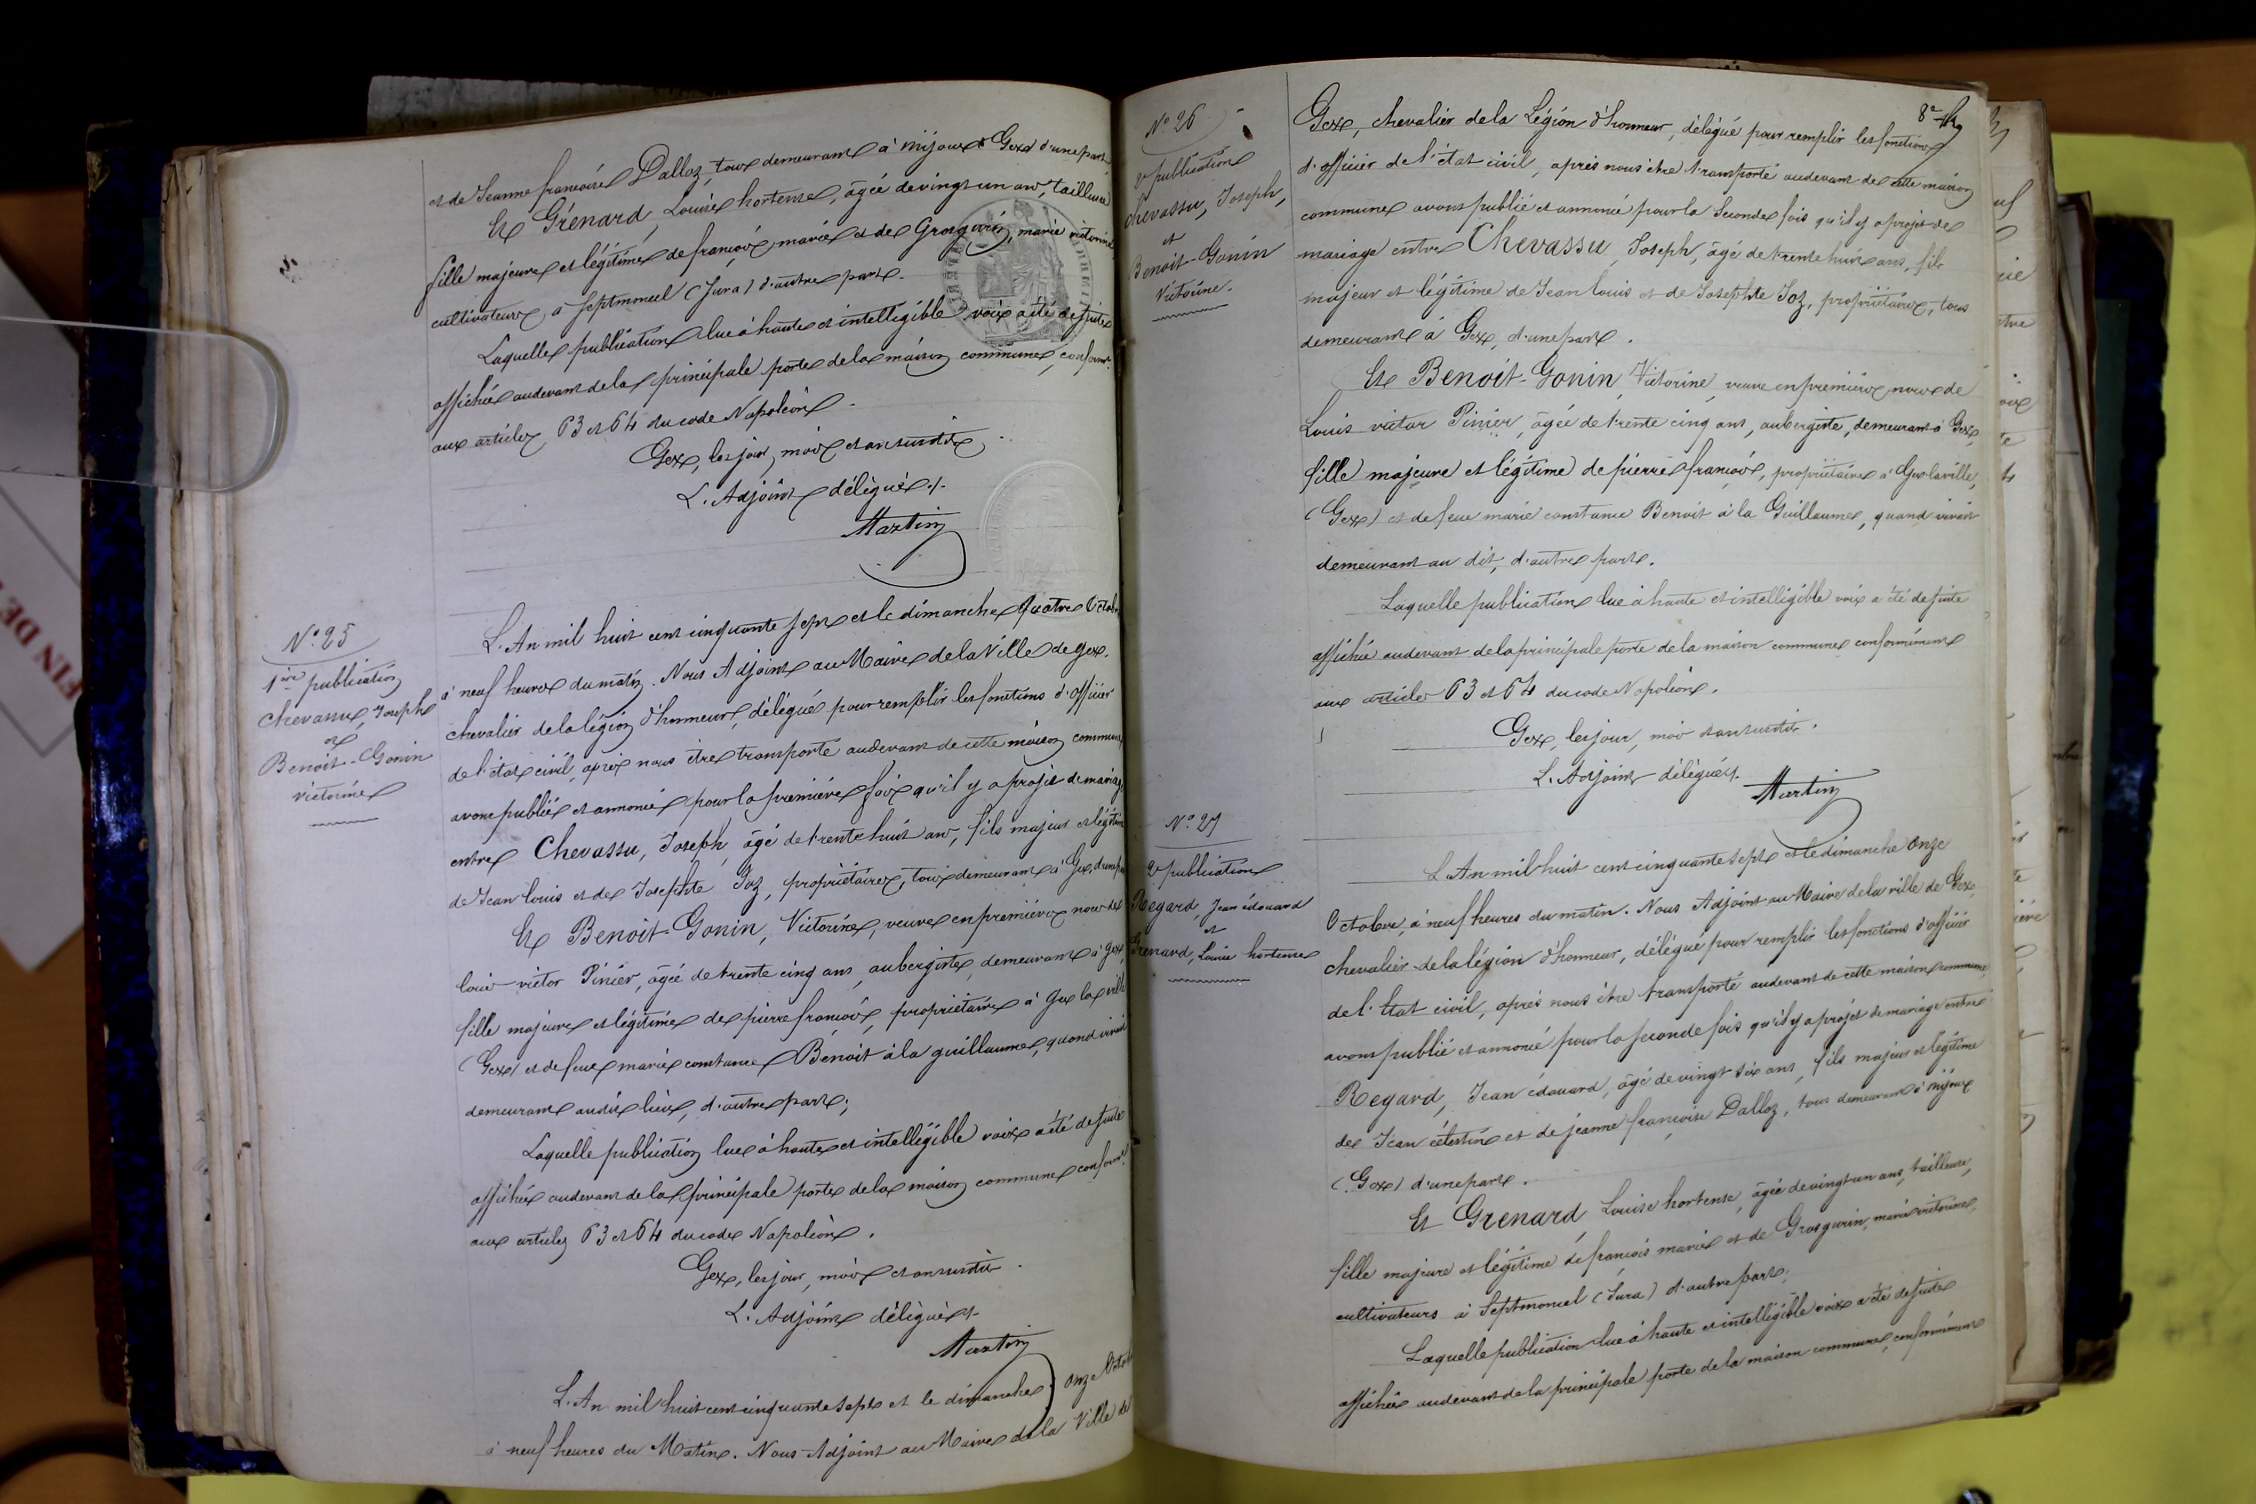 et de Jeanne françoise Dalloz, tous demeurant à Mijoux Gex d'une part,
Et Grénard, Louise hortense, âgée de vingt un ans, tailleuse
fille majeure et légitime de françois marie et de Grosgurin, marie victorine,
cultivateurs à Septmoncel (Jura) d'autre part.
Laquelle publication lue à haute et intelligible voix a été de suite
affichée audevant de la principale porte de la maison commune, conform.t
aux articles 63 et 64 du code Napoléon.
Gex, les jour, mois et an susdits.
L'Adjoint délégué.
Martin
N° 25
1ère publication
Chevassu, Joseph
et
Benoit-Gonin
victorine
L'An mil huit cent cinquante sept et le dimanche Quatre Octob
à neuf heures du matin. Nous Adjoint au Maire de la Ville de gex.
chevalier de la légion d'honneur, délégué pour remplir les fonctions d'officier
de l'état civil, après nous être transporté audevant de cette maison commune
avons publié et annoncé pour la première fois qu'il y a projet de mariage
entre Chevassu, Joseph, âgé de trente huit ans, fils majeur et légitime
de Jean louis et de Josephte Joz, propriétaires, tous demeurant à Gex, d'une part
Et Benoit-Gonin, Victorine, veuve en premières noces de
louis victor Pinier, âgée de trente cinq ans, aubergiste, demeurant à gex,
fille majeure et légitime de pierre françois, propriétaire à gex la ville
(Gex) et de feue marie constance Benoit à la guillaume, quand vivait
demeurant audit lieu, d'autre part;
Laquelle publication lue à haute et intelligible voix a été de suite
affichée audevant de la principale porte de la maison commune conform.t
aux articles 63 et 64 du code Napoléon.
Gex, les jour, mois et an susdits.
L'Adjoint délégué
Martin
L'An mil huit cent cinquante sept et le dimanche onze Octob
à neuf heures du Matin. Nous Adjoint au Maire de la Ville de
8e
N° 26
2e publication
Chevassu, Joseph,
et
Benoit-Gonin
Victorine.
Gex, chevalier de la Légion d'honneur, délégué pour remplir les fonctions
d'officier de l'état civil, après nous être transporté audevant de cette maison
commune avons publié et annoncé pour la Seconde fois qu'il y a projet de
mariage entre Chevassu, Joseph, âgé de trente huit ans, fils
majeur et légitime de Jean louis et de Josephte Joz, propriétaires, tous
demeurant à Gex, d'une part.
Et Benoit-Gonin, Victorine, veuve en premières noces de
Louis victor Pinier, âgée de trente cinq ans, aubergiste, demeurant à Gex,
fille majeure et légitime de pierre françois, propriétaire à Gex la ville,
(Gex) et de feue marie constance Benoit à la Guillaume, quand vivait
demeurant au dit, d'autre part.
Laquelle publication lue à haute et intelligible voix a été de suite
affichée audevant de la principale porte de la maison commune conformément
aux articles 63 et 64 du code Napoléon.
Gex, les jour, mois et an susdits.
L'Adjoint délégué.
Martin
N° 27
2e publication
Regard, Jean édouard
et
Grenard, Louise hortense
L'An mil huit cent cinquante sept et le dimanche onze
Octobre, à neuf heures du matin. Nous Adjoint au Maire de la ville de Gex,
chevalier de la légion d'honneur, délégué pour remplir les fonctions d'officier
de l'état civil, après nous être transporté audevant de cette maison commune
avons publié et annoncé pour la seconde fois qu'il y a projet de mariage entre
Regard, Jean édouard, âgé de vingt six ans, fils majeur et légitime
de Jean célestin et de jeanne françoise Dalloz, tous demeurant à Mijoux
(Gex) d'une part.
Et Grenard, Louise hortense, âgée de vingt un ans, tailleuse,
fille majeure et légitime de françois marie et de Grosgurin, marie victorine,
cultivateurs à Septmoncel (Jura) d'autre part;
Laquelle publication lue à haute et intelligible voix a été de suite
affichée audevant de la principale porte de la maison commune, conformément